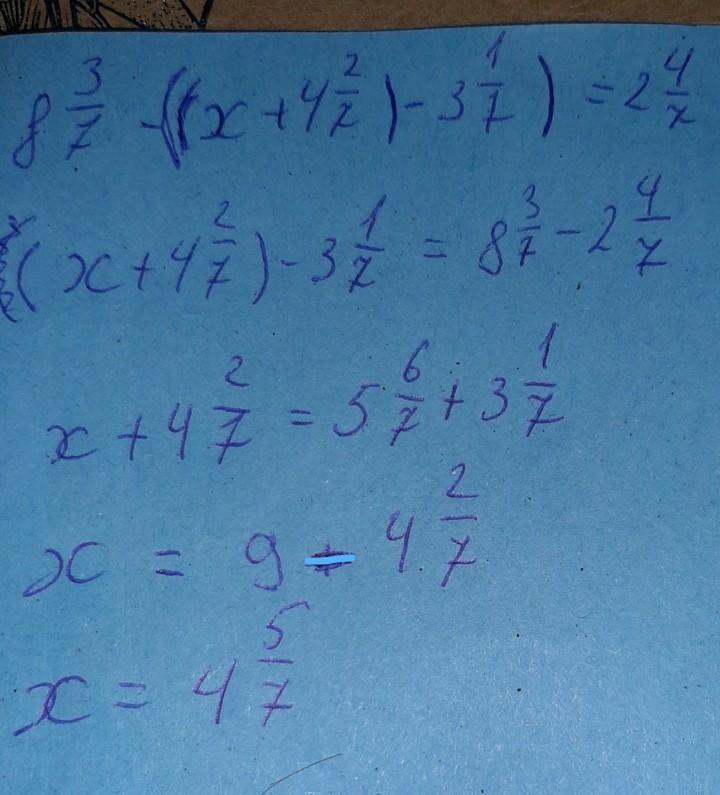 8 3/7 - ((x + 4 2/7) - 3 1/7) = 2 4/7
(x + 4 2/7) - 3 1/7 = 8 3/7 - 2 4/7
x + 4 2/7 = 5 6/7 + 3 1/7
x = 9 - 4 2/7
x = 4 5/7